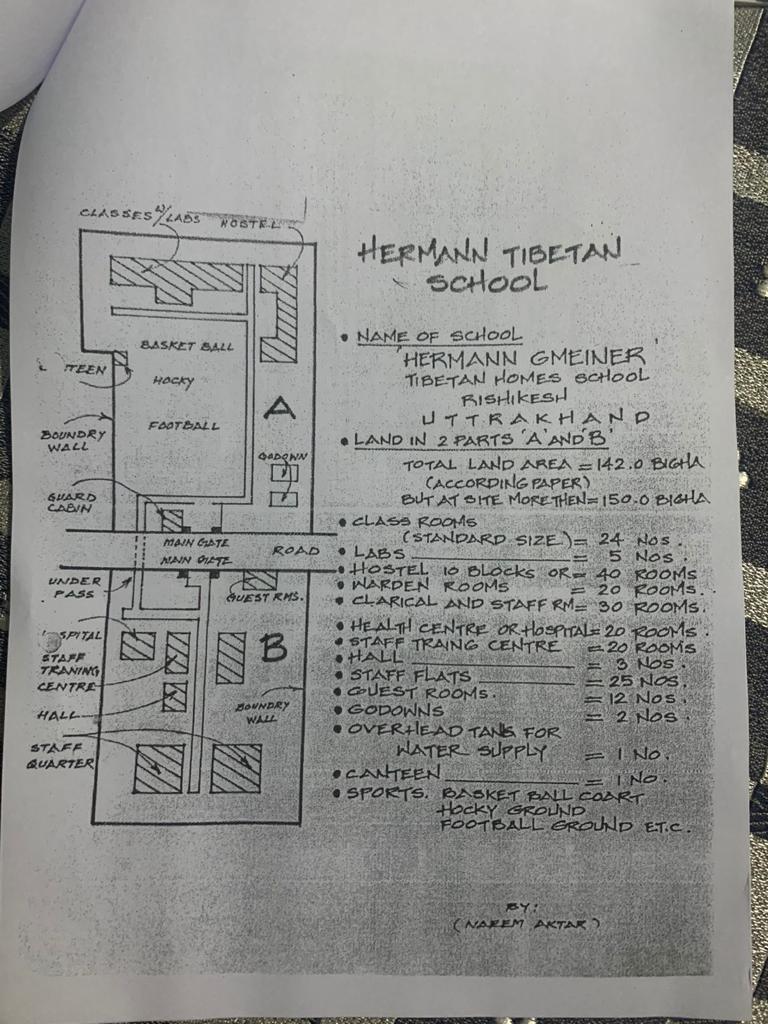 CLASSES W/LABS
HOSTEL
BASKET BALL
TEEN
HOCKY
FOOTBALL
A
BOUNDRY
WALL
GODOWN
GUARD
CABIN
MAIN GATE
MAIN GATE
ROAD
UNDER
PASS
GUEST RMS.
SPITAL
STAFF
TRANING
CENTRE
B
HALL
BOUNDRY
WALL
STAFF
QUARTER
HERMANN TIBETAN
SCHOOL
• NAME OF SCHOOL
'HERMANN GMEINER'
TIBETAN HOMES SCHOOL
RISHIKESH
UTTRAKHAND
• LAND IN 2 PARTS 'A' AND 'B'
TOTAL LAND AREA = 142.0 BIGHA
(ACCORDING PAPER)
BUT AT SITE MORE THEN = 150.0 BIGHA
• CLASS ROOMS
(STANDARD SIZE) = 24 NOS.
• LABS = 5 NOS.
• HOSTEL 10 BLOCKS OR = 40 ROOMS
• WARDEN ROOMS = 20 ROOMS.
• CLARICAL AND STAFF RM = 30 ROOMS.
• HEALTH CENTRE OR HOSPITAL = 20 ROOMS.
• STAFF TRAING CENTRE = 20 ROOMS
• HALL = 3 NOS.
• STAFF FLATS = 25 NOS.
• GUEST ROOMS. = 12 NOS.
• GODOWNS = 2 NOS.
• OVERHEAD TANG FOR
WATER SUPPLY = 1 NO.
• CANTEEN = 1 NO.
• SPORTS. BASKET BALL COART
HOCKY GROUND
FOOTBALL GROUND E.T.C.
BY:
(NAEEM AKTAR)